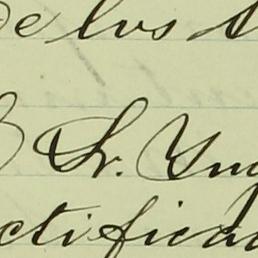 de los
Sr. Yng
ctifica